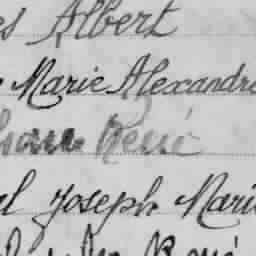 es Albert
Marie Alexandre
René
l Joseph Marie
René